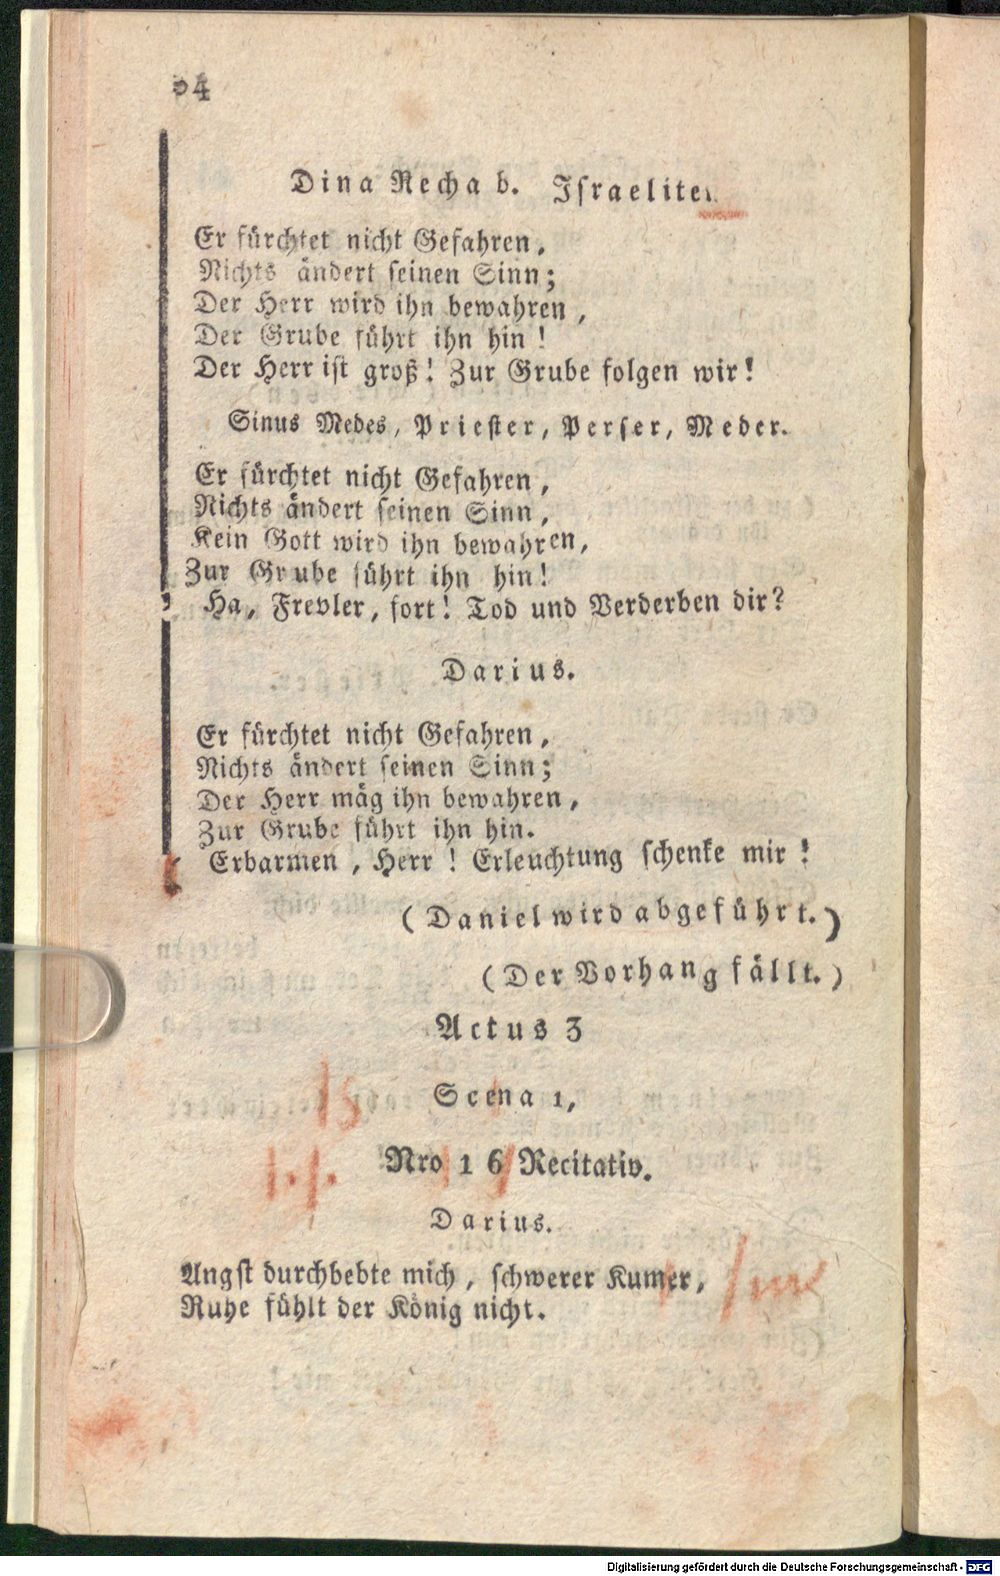 24
Dina Recha b. Israeliten
Er fürchtet nicht Gefahren,
Nichts ändert seinen Sinn;
Der Herr wird ihn bewahren,
Der Grube führt ihn hin!
Der Herr ist groß! Zur Grube folgen wir!
Sinus Medes, Priester, Perser, Meder.
Er fürchtet nicht Gefahren,
Nichts ändert seinen Sinn,
Kein Gott wird ihn bewahren,
Zur Grube führt ihn hin!
Ha, Frevler, fort! Tod und Verderben dir?
Darius.
Er fürchtet nicht Gefahren,
Nichts ändert seinen Sinn;
Der Herr mäg ihn bewahren,
Zur Grube führt ihn hin.
Erbarmen, Herr! Erleuchtung schenke mir!
(Daniel wird abgeführt.)
(Der Vorhang fällt.)
Actus 3
Scena 1,
Nro 16 Recitativ.
Darius.
Angst durchbebte mich, schwerer Kumer,
Ruhe fühlt der König nicht.
Digitalisierung gefördert durch die Deutsche Forschungsgemeinschaft - DFG